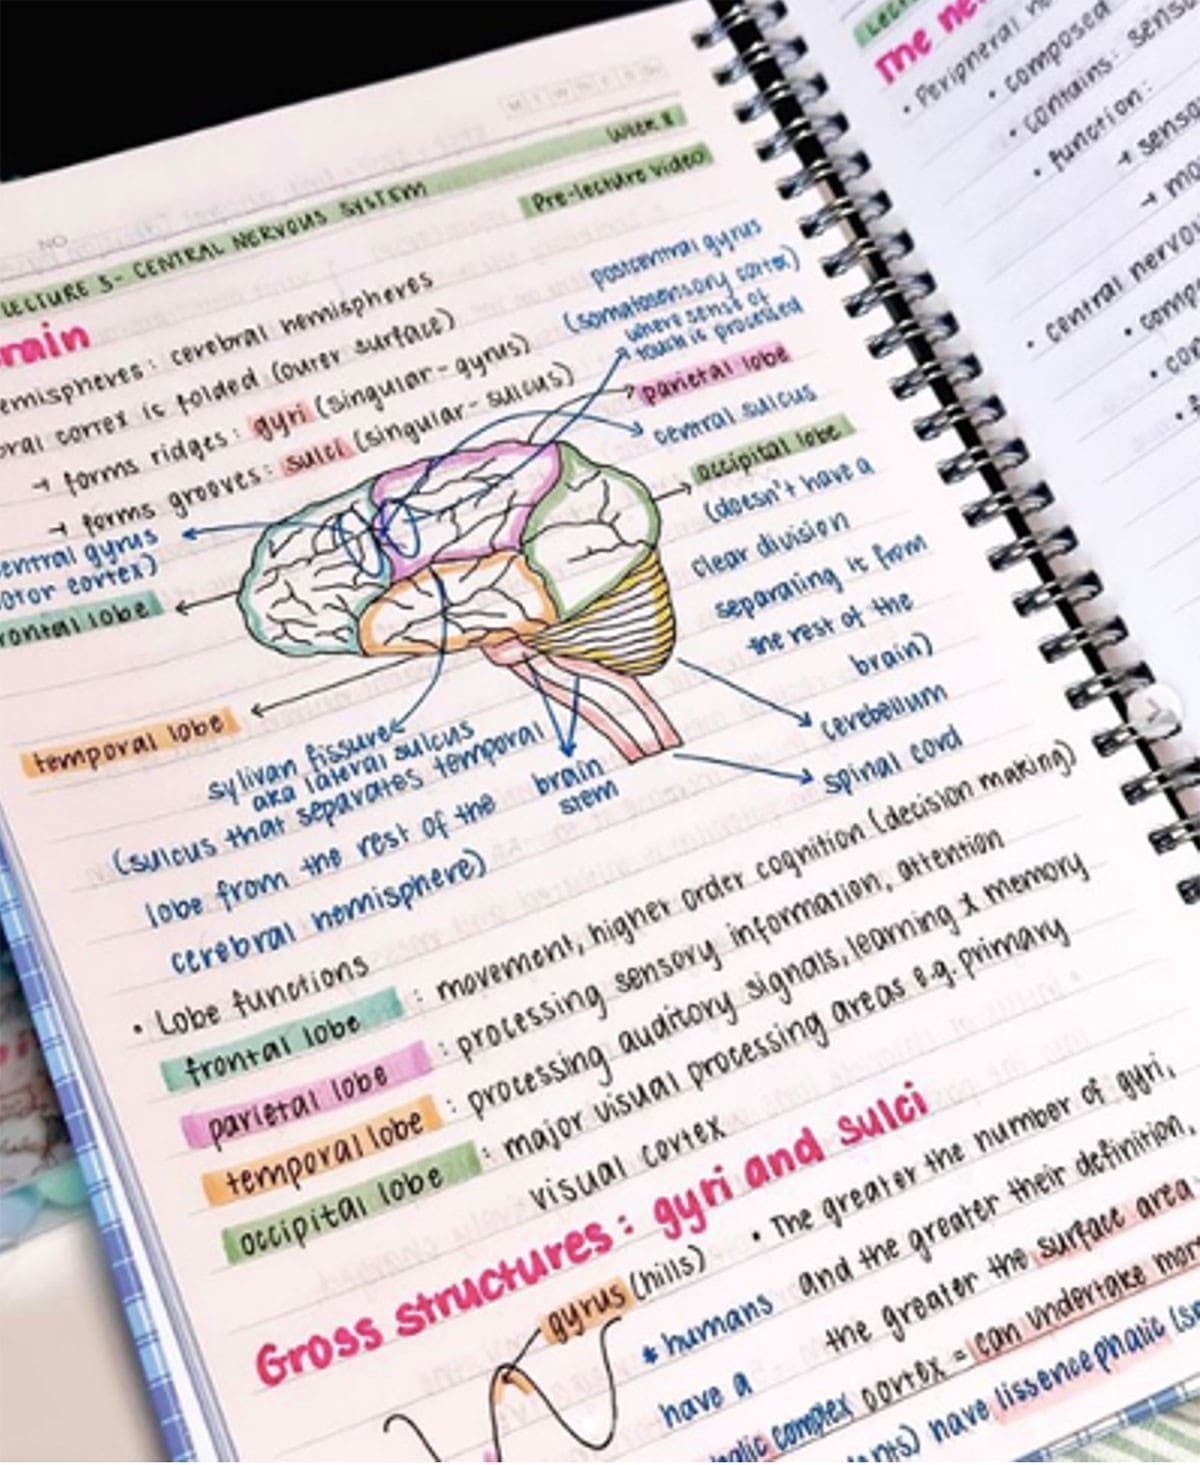 M T W T F S S
NO.
Week 8
LECTURE 5- CENTRAL NERVOUS SYSTEM
Pre-lecture video
rain
emispheres: cerebral hemispheres
ral cortex is folded (outer surface)
→ forms ridges: gyri (singular-gyrus)
→ forms grooves: sulci (singular-sulcus)
postcentral gyrus
(somatosensory cortex)
where sense of
touch is processed
parietal lobe
central sulcus
occipital lobe
(doesn't have a
clear division
separating it from
the rest of the
brain)
entral gyrus
otor cortex)
rontal lobe
temporal lobe
sylivan fissure
aka lateral sulcus
(sulcus that separates temporal
lobe from the rest of the
cerebral hemisphere)
brain
stem
cerebellum
spinal cord
• Lobe functions
frontal lobe : movement, higher order cognition (decision making)
parietal lobe : processing sensory information, attention
temporal lobe : processing auditory signals, learning & memory
occipital lobe : major visual processing areas e.g. primary
visual cortex
Gross structures: gyri and sulci
gyrus (hills)
• The greater the number of gyri,
and the greater their definition,
the greater the surface area
cortex = can undertake more
* humans
have a
alic complex
nts) have lissencephalic (s
me ne
• Peripheral n
• composed
• contains: senso
• function:
→ senso
→ mo
• central nervou
• compo
• con